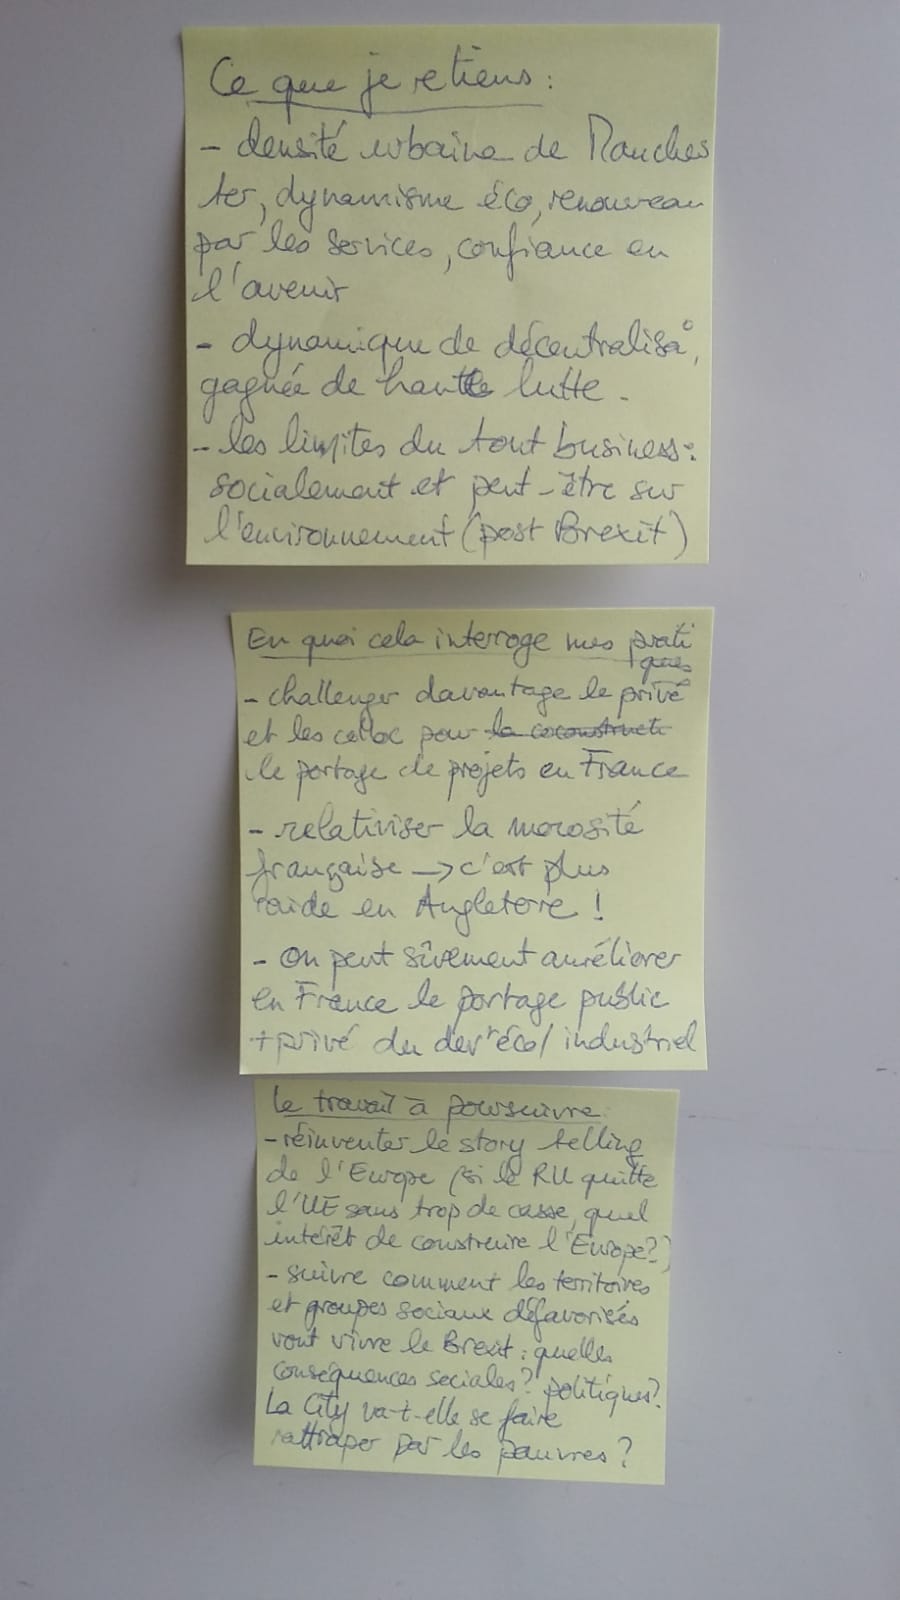 Ce que je retiens :
- densité urbaine de Manches
ter, dynamisme éco, renouveau
par les services, confiance en
l'avenir
- dynamique de décentralisa°,
gagnée de haute lutte.
- les limites du tout business :
socialement et peut-être sur
l'environnement (post Brexit)
En quoi cela interroge mes prati
ques
- challenger davantage le privé
et les colloc pour la coconstructi
le portage de projets en France
- relativiser la morosité
française → c'est plus
raide en Angleterre !
- On peut sûrement améliorer
en France le portage public
+ privé du devt éco/industriel
Le travail à poursuivre :
- réinventer le story telling
de l'Europe (si le RU quitte
l'UE sans trop de casse, quel
intérêt de construire l'Europe?)
- suivre comment les territoires
et groupes sociaux défavorisés
vont vivre le Brexit : quelles
conséquences sociales? politiques?
La City va-t-elle se faire
rattraper par les pauvres ?